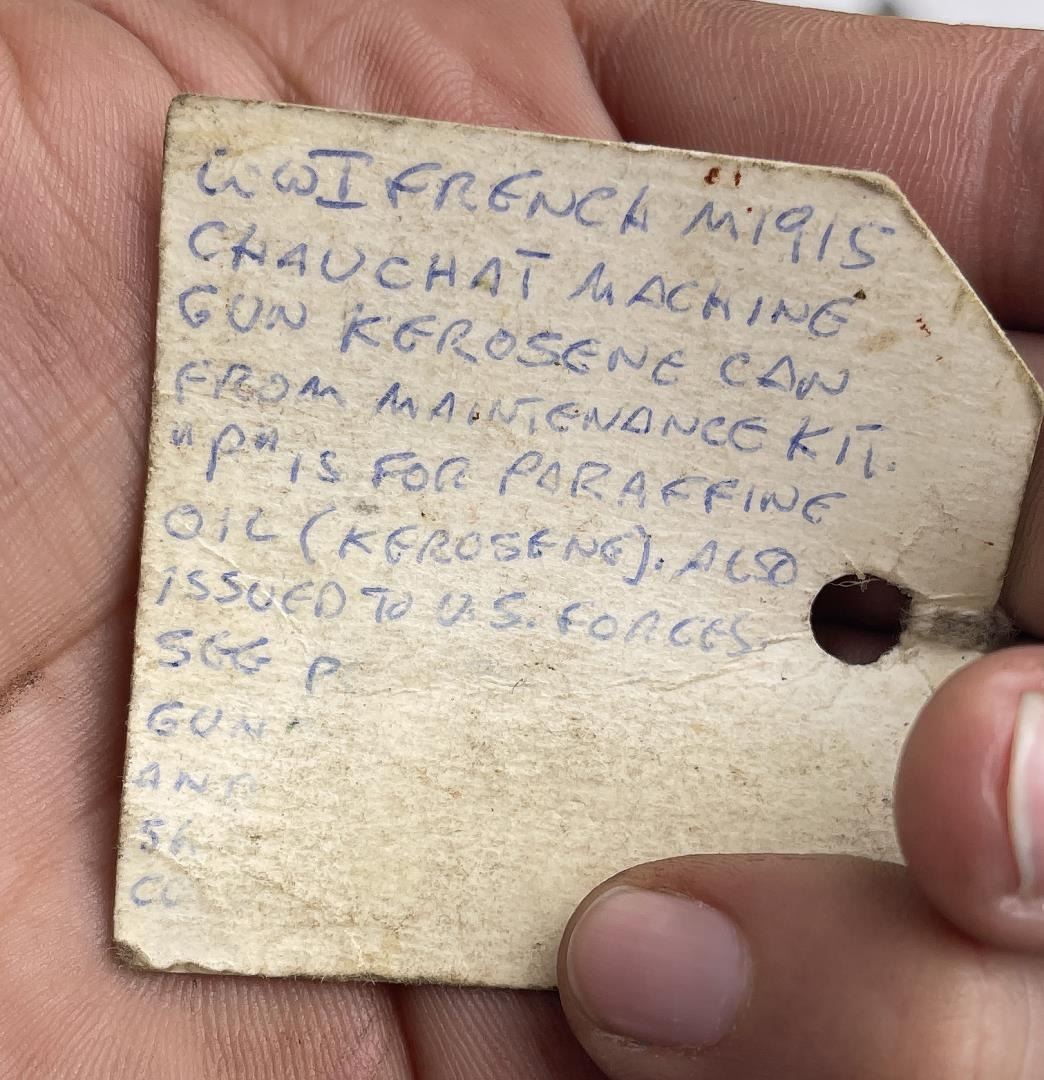 WWI FRENCH M1915
CHAUCHAT MACHINE
GUN KEROSENE CAN
FROM MAINTENANCE KIT.
"P" IS FOR PARAFFINE
OIL (KEROSENE). ALSO
ISSUED TO U.S. FORCES.
SEE P
GUN
AND